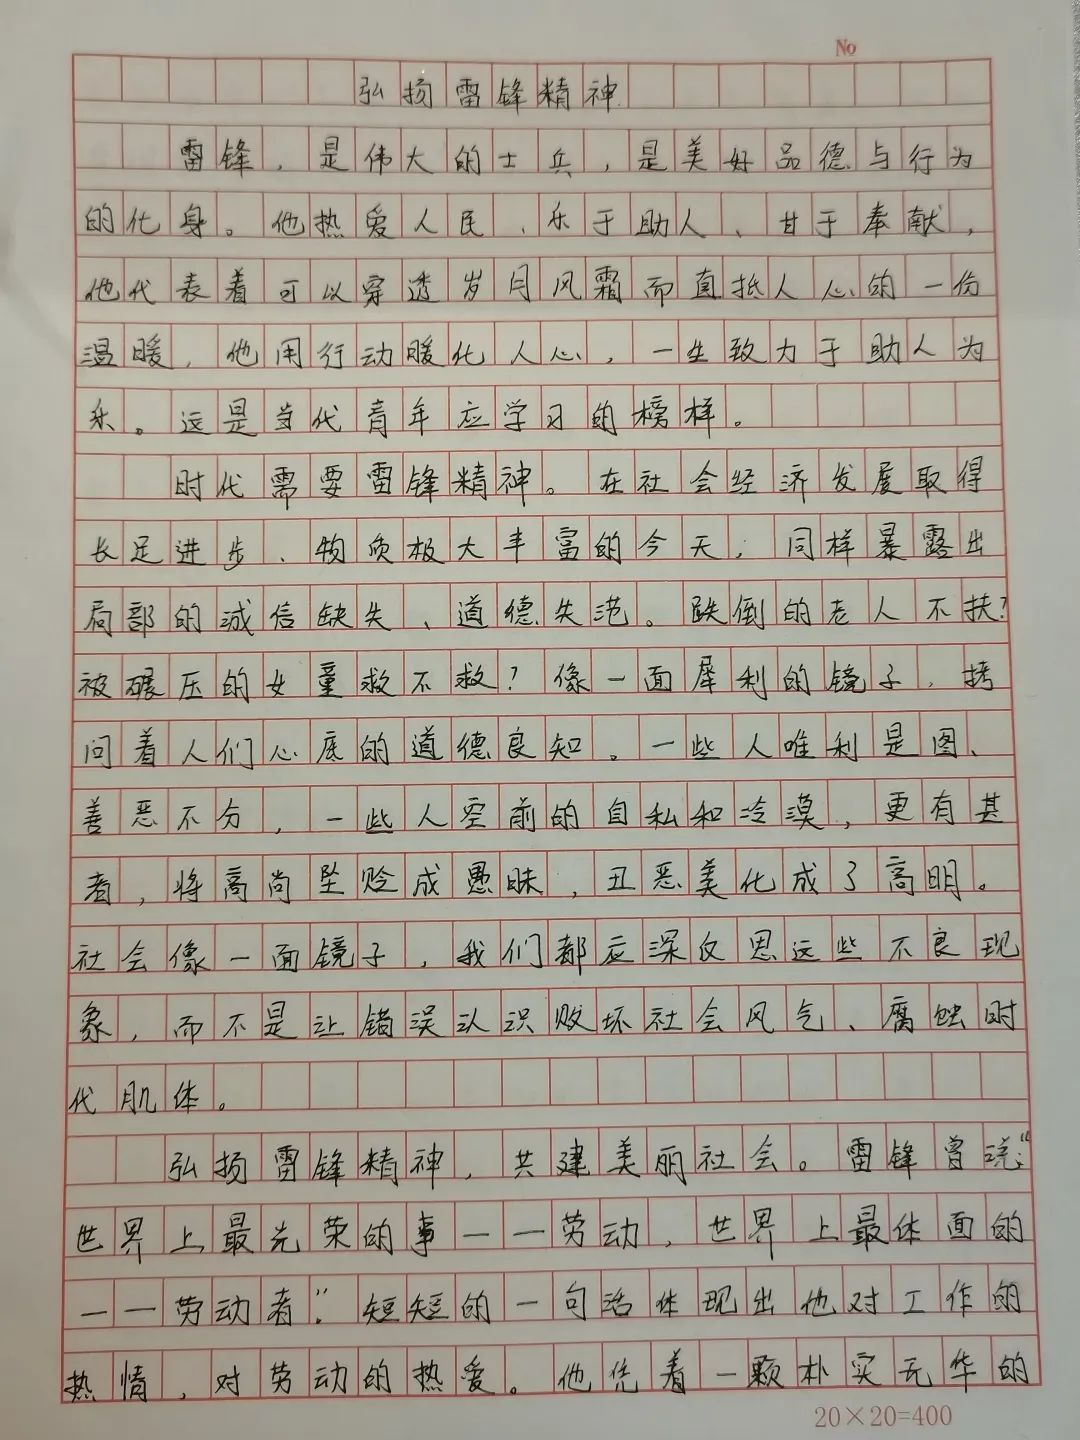 No
弘扬雷锋精神
雷锋，是伟大的士兵，是美好品德与行为
的化身。他热爱人民、乐于助人、甘于奉献，
他代表着可以穿透岁月风霜而直抵人心的一份
温暖，他用行动暖化人心，一生致力于助人为
乐。这是当代青年应学习的榜样。
时代需要雷锋精神。在社会经济发展取得
长足进步、物质极大丰富的今天，同样暴露出
局部的诚信缺失、道德失范。跌倒的老人不扶？
被碾压的女童救不救？像一面犀利的镜子，拷
问着人们心底的道德良知。一些人唯利是图、
善恶不分，一些人空前的自私和冷漠，更有甚
者，将高尚坠贬成愚昧，丑恶美化成了高明。
社会像一面镜子，我们都应深仅思这些不良现
象，而不是让错误认识败坏社会风气、腐蚀时
代肌体。
弘扬雷锋精神，共建美丽社会。雷锋曾说：“
世界上最光荣的事——劳动，世界上最体面的
——劳动者”。短短的一句话体现出他对工作的
热情，对劳动的热爱。他凭着一颗朴实无华的
20×20=400